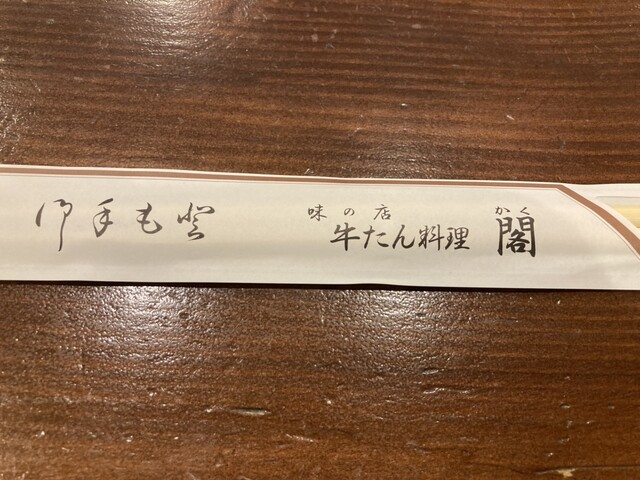 御手もと
味の店
牛たん料理 閣
かく